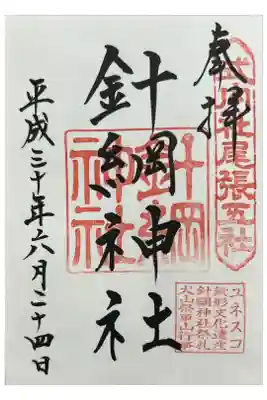 奉拝
式内社尾張五社
針綱神社
針綱
神社
ユネスコ
無形文化遺産
針綱神社祭礼
犬山祭車山行事
平成三十年六月二十四日